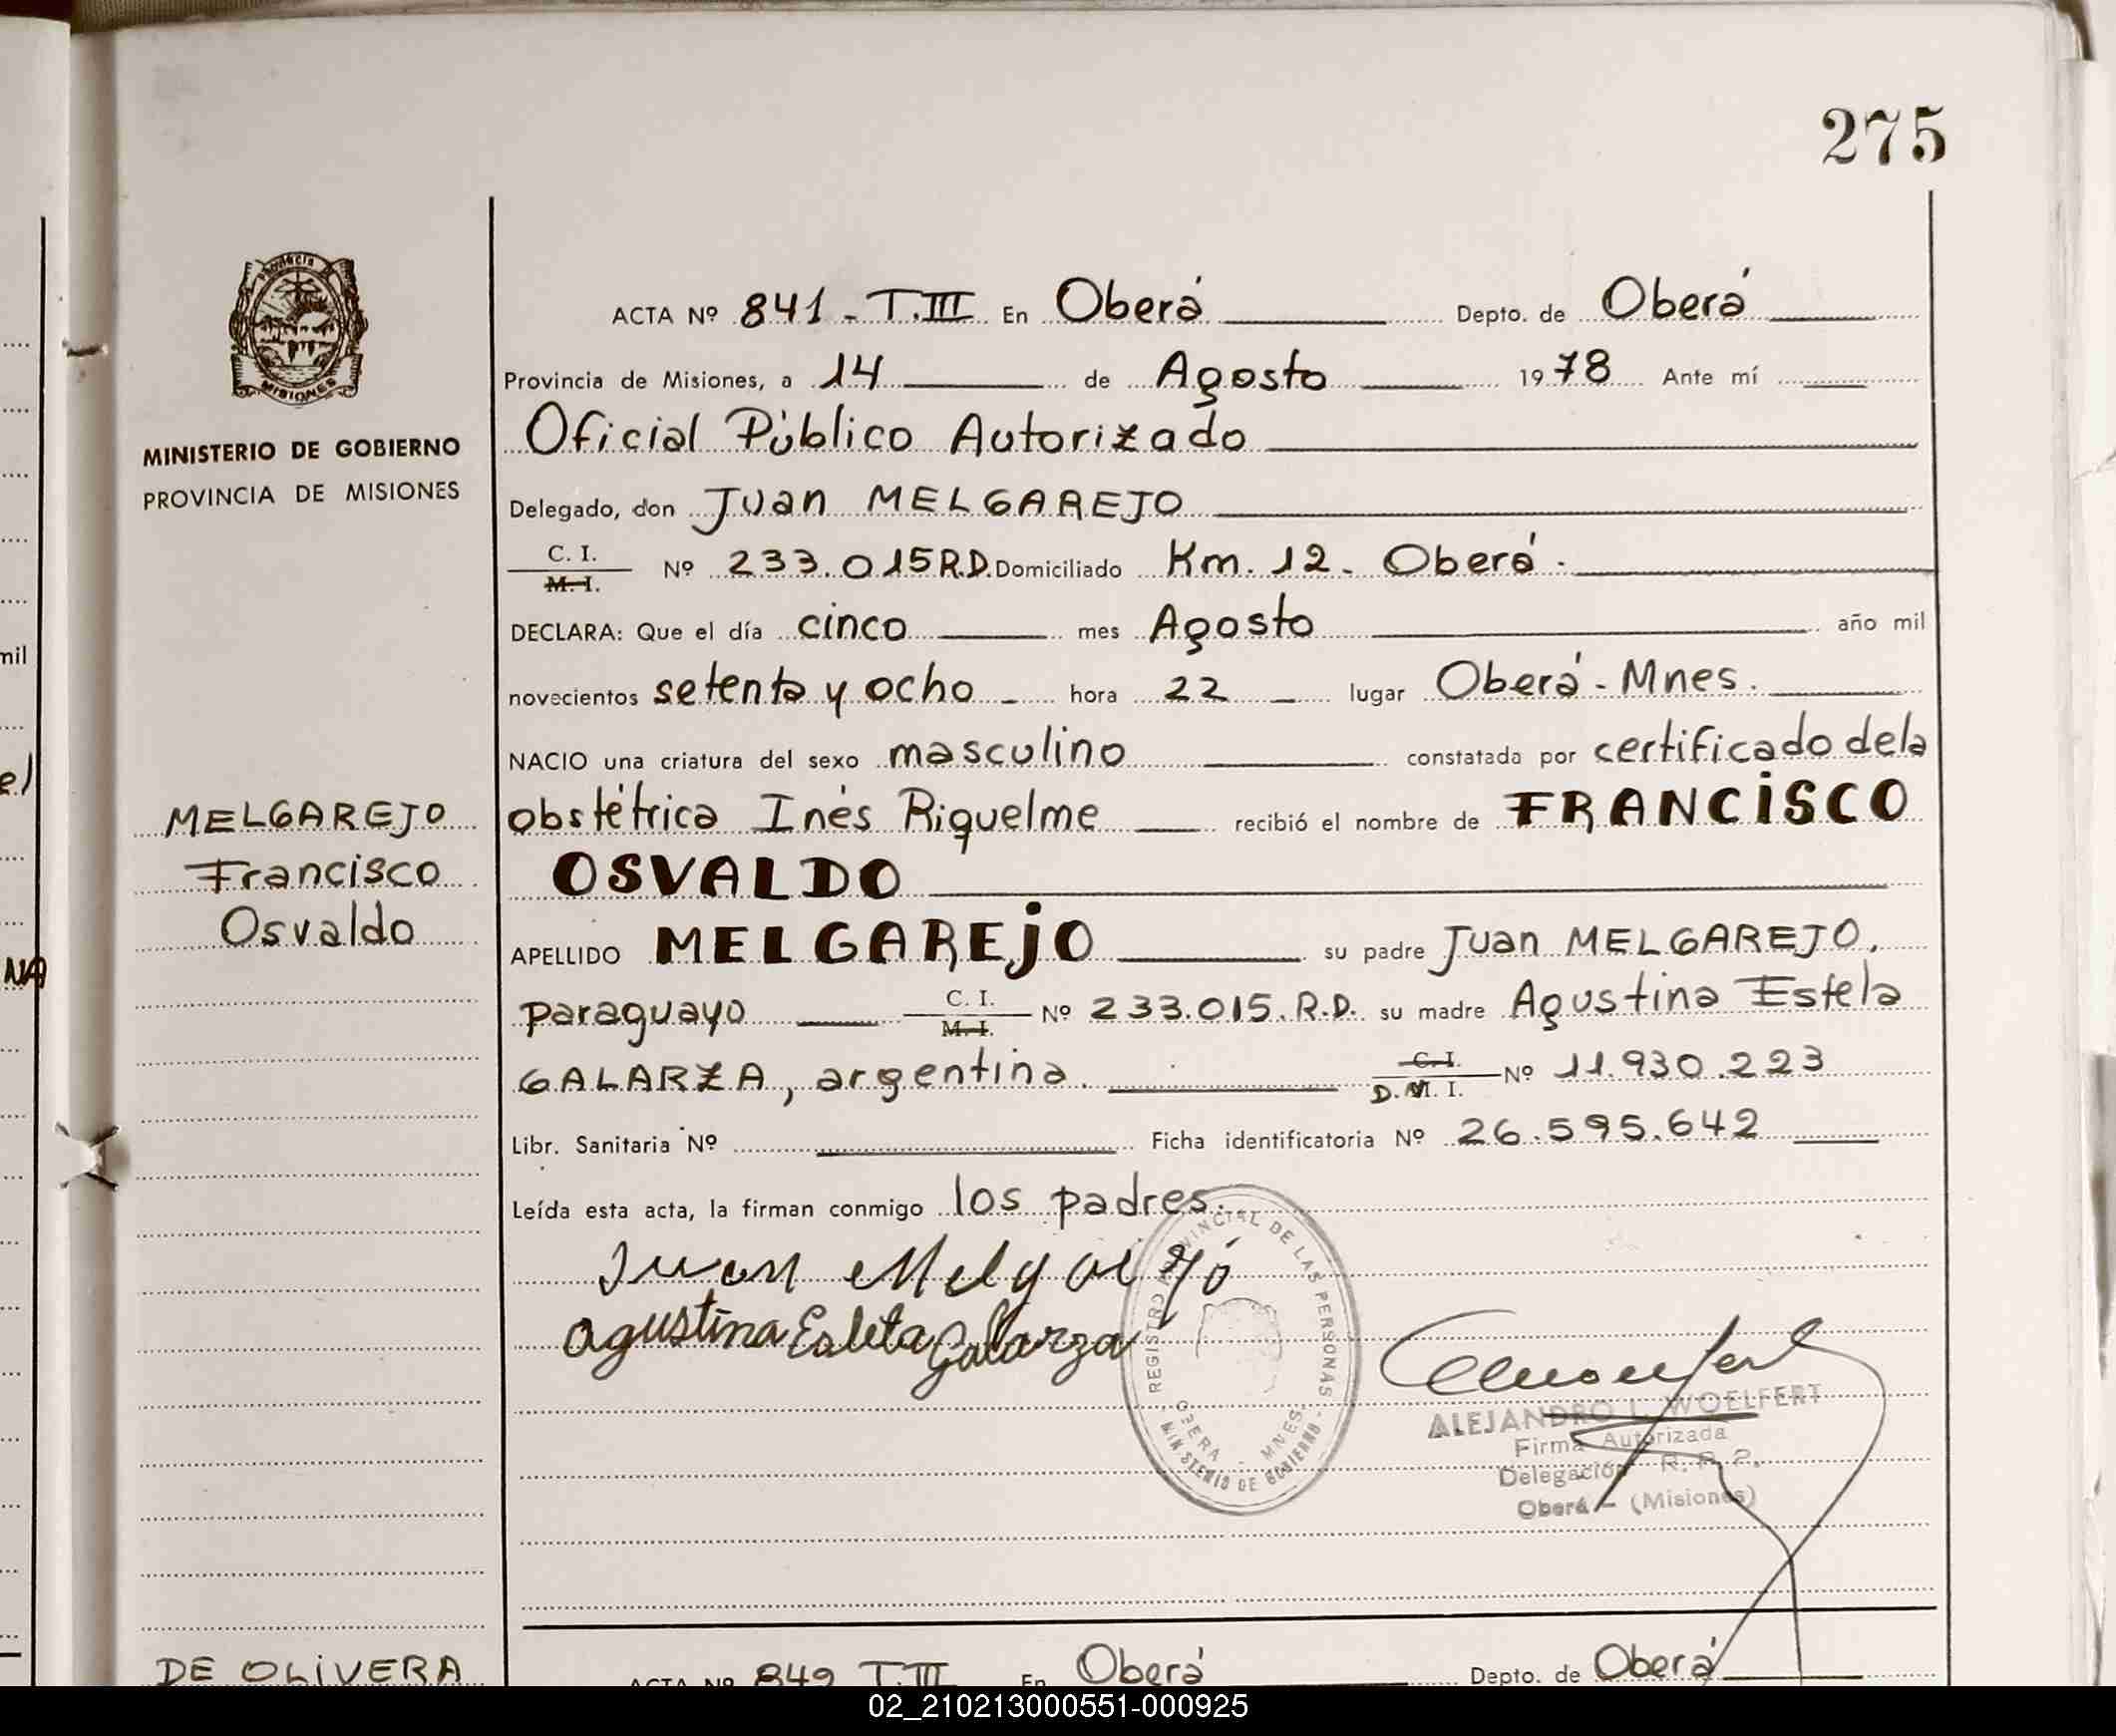 275
Provincia
MISIONES
MINISTERIO DE GOBIERNO
PROVINCIA DE MISIONES
ACTA Nº 841 - T.III En Oberá Depto. de Oberá
Provincia de Misiones, a 14 de Agosto 1978 Ante mí
Oficial Público Autorizado
Delegado, don Juan MELGAREJO
C. I.
M. I. Nº 233.015 R.D. Domiciliado Km. 12 - Oberá.
DECLARA: Que el día cinco mes Agosto año mil
novecientos setenta y ocho hora 22 lugar Oberá - Mnes.
NACIO una criatura del sexo masculino constatada por certificado dela
MELGAREJO
Francisco
Osvaldo
obstétrica Inés Riquelme recibió el nombre de FRANCISCO
OSVALDO
APELLIDO MELGAREJO su padre Juan MELGAREJO,
paraguayo C. I. M. I. Nº 233.015. R.D. su madre Agustina Estela
GALARZA, argentina. C. I. D. M. I. Nº 11.930.223
Libr. Sanitaria Nº Ficha identificatoria Nº 26.595.642
Leída esta acta, la firman conmigo los padres.
Juan Melgarejo
Agustina Esleta Galarza
REGISTRO PROVINCIAL DE LAS PERSONAS
OBERA - MNES.
MINISTERIO DE GOBIERNO
ALEJANDRO I. WOELFERT
Firma Autorizada
Delegación R. P. P.
Oberá - (Misiones)
DE OLIVERA
ACTA Nº 842 T.III En Oberá Depto. de Oberá
mil
el
NA
02_210213000551-000925